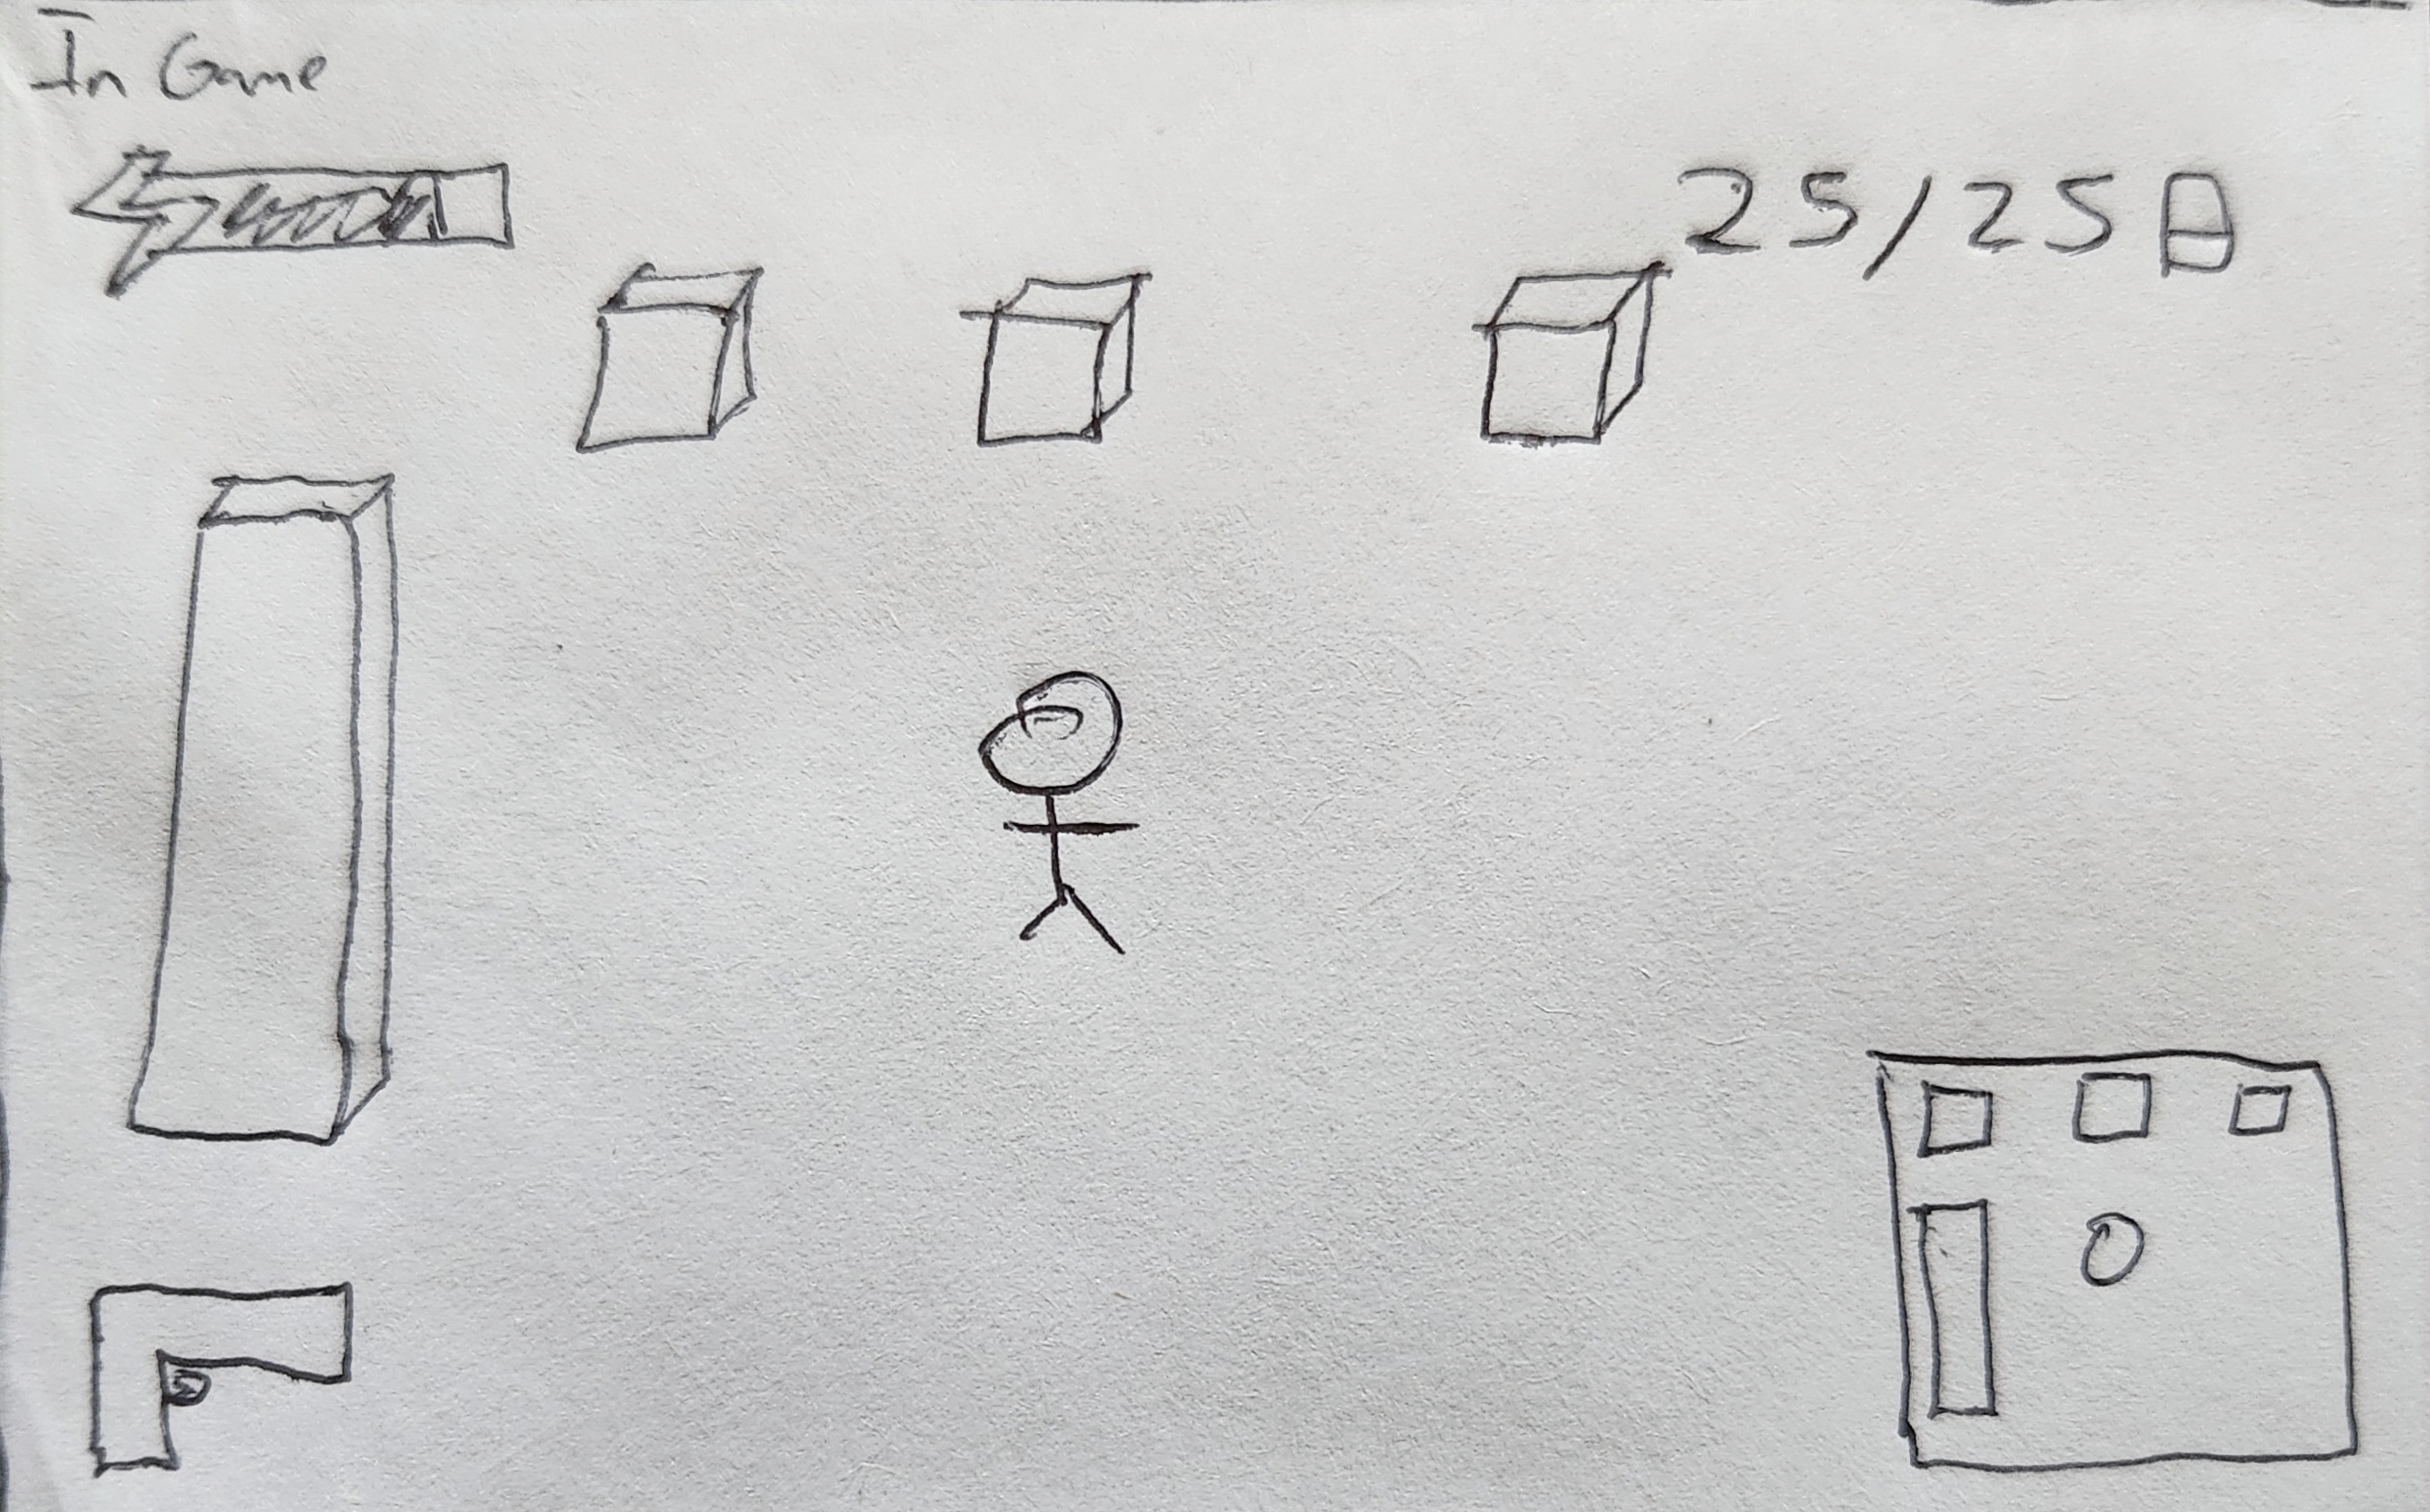 In Game
25/25